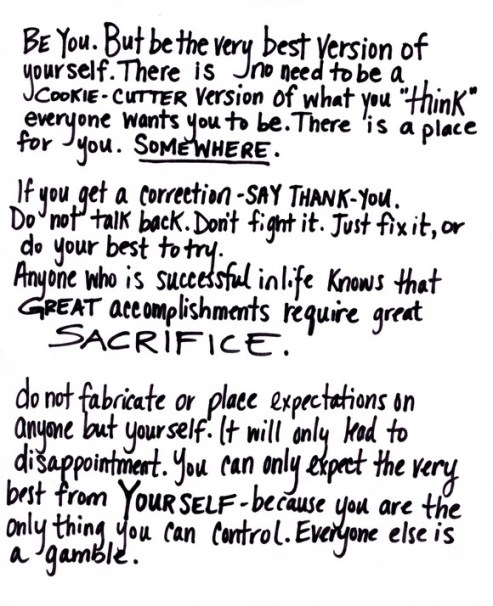 BE YOU. But be the very best version of
yourself. There is no need to be a
COOKIE-CUTTER version of what you "think"
everyone wants you to be. There is a place
for you. SOMEWHERE.
If you get a correction - SAY THANK-YOU.
Do not talk back. Don't fight it. Just fix it, or
do your best to try.
Anyone who is successful in life knows that
GREAT accomplishments require great
SACRIFICE.
do not fabricate or place expectations on
anyone but yourself. It will only lead to
disappointment. You can only expect the very
best from YOURSELF - because you are the
only thing you can control. Everyone else is
a gamble.